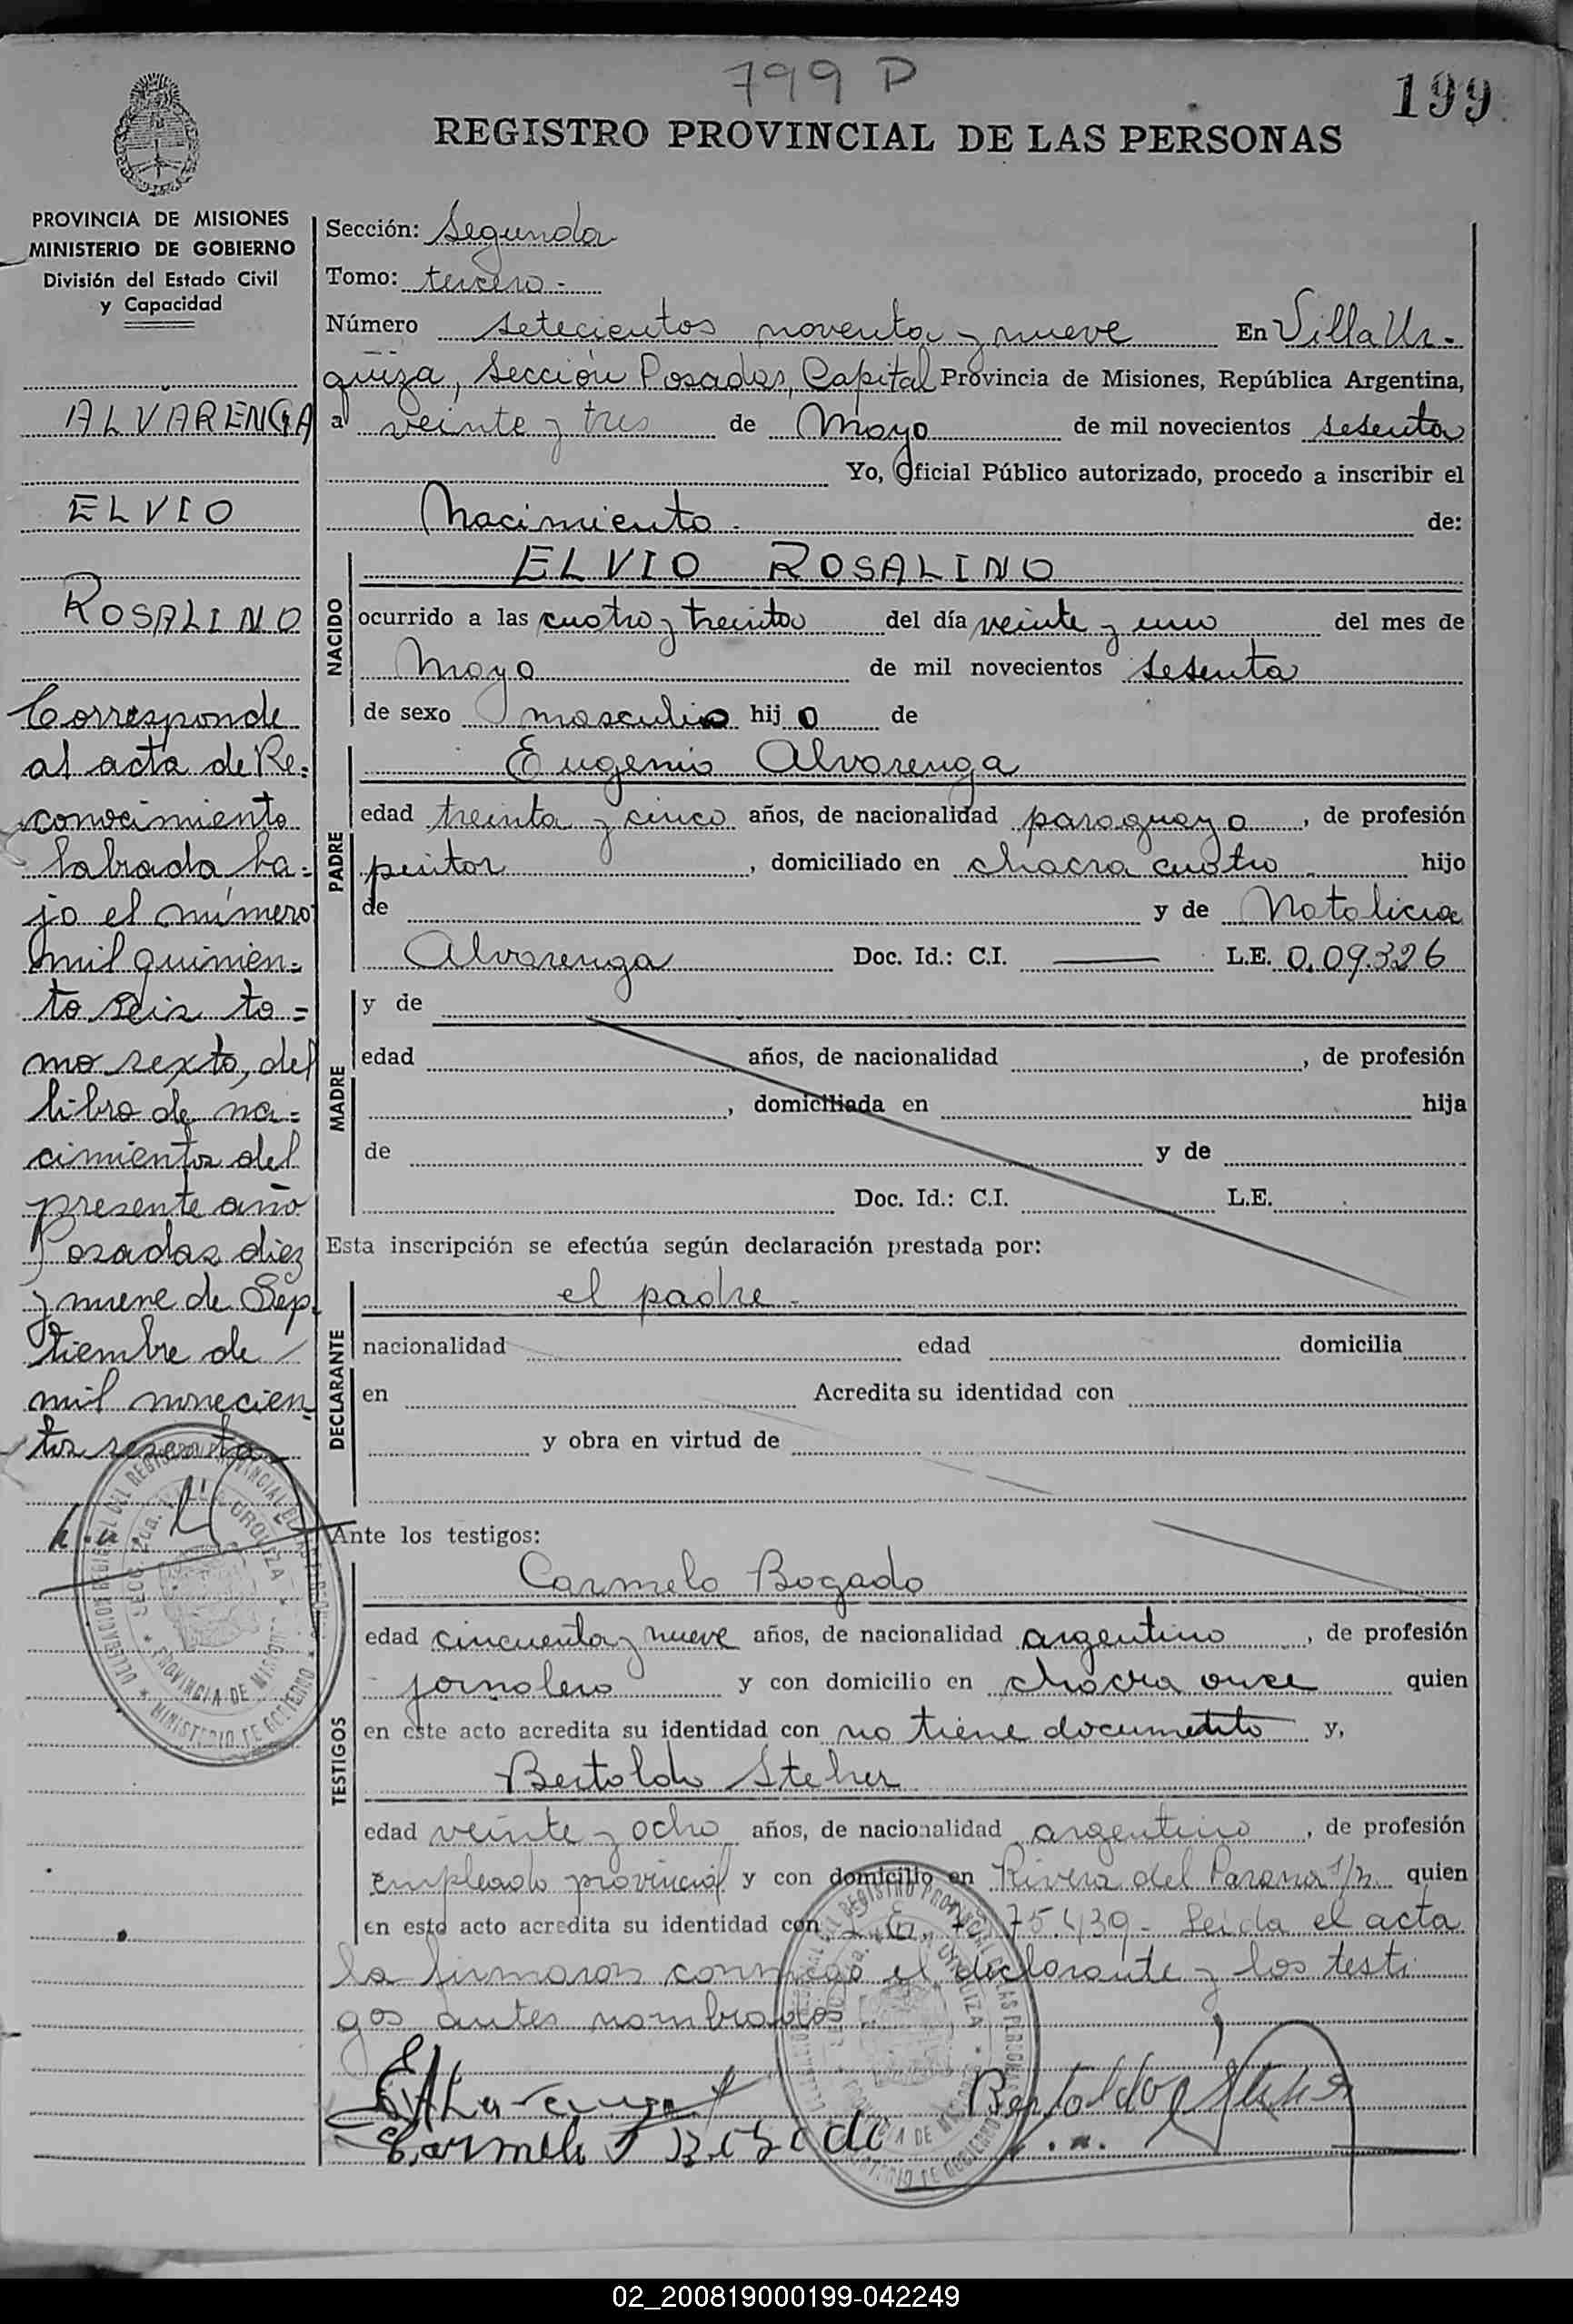 799 P
199
REGISTRO PROVINCIAL DE LAS PERSONAS
PROVINCIA DE MISIONES
MINISTERIO DE GOBIERNO
División del Estado Civil
y Capacidad
ALVARENGA
ELVIO
ROSALINO
Corresponde
al acta de Re=
conocimiento
labrada ba=
jo el número
mil quinien=
to seis to=
mo sexto, del
libro de na=
cimientos del
presente año
Posadas diez
y nueve de Sep
tiembre de
mil novecien
tos sesenta
Sección: Segunda
Tomo: tercero -
Número setecientos noventa y nueve En Villa Ur-
quiza, Sección Posadas, Capital Provincia de Misiones, República Argentina,
a veinte y tres de Mayo de mil novecientos sesenta
Yo, Oficial Público autorizado, procedo a inscribir el
Nacimiento - de:
NACIDO
ELVIO ROSALINO
ocurrido a las cuatro y treinta del día veinte y uno del mes de
Mayo de mil novecientos sesenta
de sexo masculino hijo de
PADRE
Eugenio Alvarenga
edad treinta y cinco años, de nacionalidad paraguaya, de profesión
pintor, domiciliado en chacra cuatro hijo
de y de Natalicia
Alvarenga Doc. Id.: C.I. L.E. 0.09.326
MADRE
y de
edad años, de nacionalidad , de profesión
, domiciliada en hija
de y de
Doc. Id.: C.I. L.E.
Esta inscripción se efectúa según declaración prestada por:
DECLARANTE
el padre -
nacionalidad edad domicilia
en Acredita su identidad con
y obra en virtud de
Ante los testigos:
TESTIGOS
Carmelo Bogado
edad cincuenta y nueve años, de nacionalidad argentino, de profesión
jornalero y con domicilio en chacra once quien
en este acto acredita su identidad con no tiene documento y,
Bertoldo Steher
edad veinte y ocho años, de nacionalidad argentino, de profesión
empleado provincial y con domicilio en Rivera del Parana s/n quien
en este acto acredita su identidad con 75.439 - Leida el acta
la firmaron conmigo el declarante y los testi
gos antes nombrados
Carmelo Bogado
Bertoldo
02_200819000199-042249